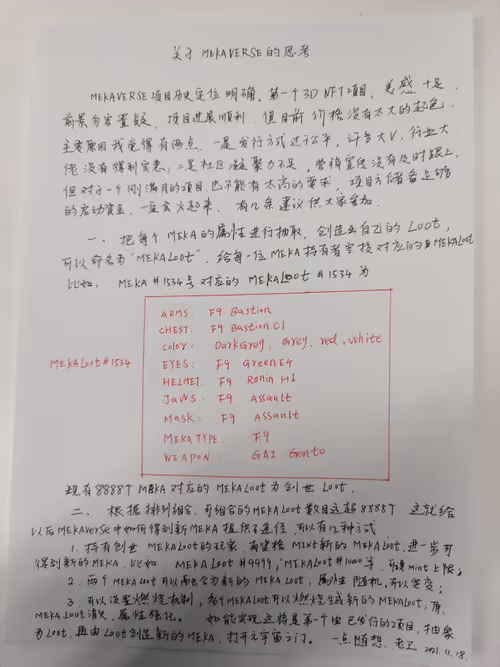 关于 MEKAVERSE 的思考
MEKAVERSE 项目历史定位明确,第一个3D NFT项目,美感十足,
前景毋容置疑,项目进展顺利,但目前价格没有太大的起色,
主要原因我觉得有两点,一是发行方式过于公平,许多大V,行业大
佬没有得到实惠;二是社区凝聚力不足,营销宣传没有及时跟上。
但对于一个刚满月的项目也不能有太高的要求,项目方储备足够
的启动资金,一定会火起来,有几条建议供大家参加.
一、把每个MEKA的属性进行抽取,创造出自己的Loot,
可以命名为"MEKALoot",给每一位MEKA持有者空投对应的MEKALoot
比如,MEKA #1534号对应的MEKALoot #1534为
MEKALoot#1534
ARMS: F9 Bastion
CHEST: F9 Bastion C1
Color: DarkGrey, Grey, red, White
EYES: F9 Green E4
HELMET: F9 Ronin H1
JAWS: F9 Assault
Mask: F9 Assault
MEKA TYPE: F9
WEAPON: GAI Gonto
现有8888个MEKA对应的MEKALoot为创世Loot.
二、根据排列组合,可组合的MEKALoot数目远超8888个,这就给
以后MEKAverse中如何得到新MEKA提供了途径,可以有几种方式
1. 持有创世MEKALoot的玩家,有资格MINT新的MEKALoot,进一步可
得到新的MEKA,比如 MEKALoot #9999, MEKALoot #10000等,可设Mint上限;
2. 两个MEKALoot可以融合为新的MEKALoot,属性随机,可以突变;
3. 可以设置燃烧机制,多个MEKALoot可以燃烧生成新的MEKALoot,原
MEKALoot消失,属性强化。 如能实现这将是第一个由已发行的项目,抽象
为Loot,再由Loot创造新的MEKA,打开元宇宙之门。 一点随想,老卫 2021.11.18.